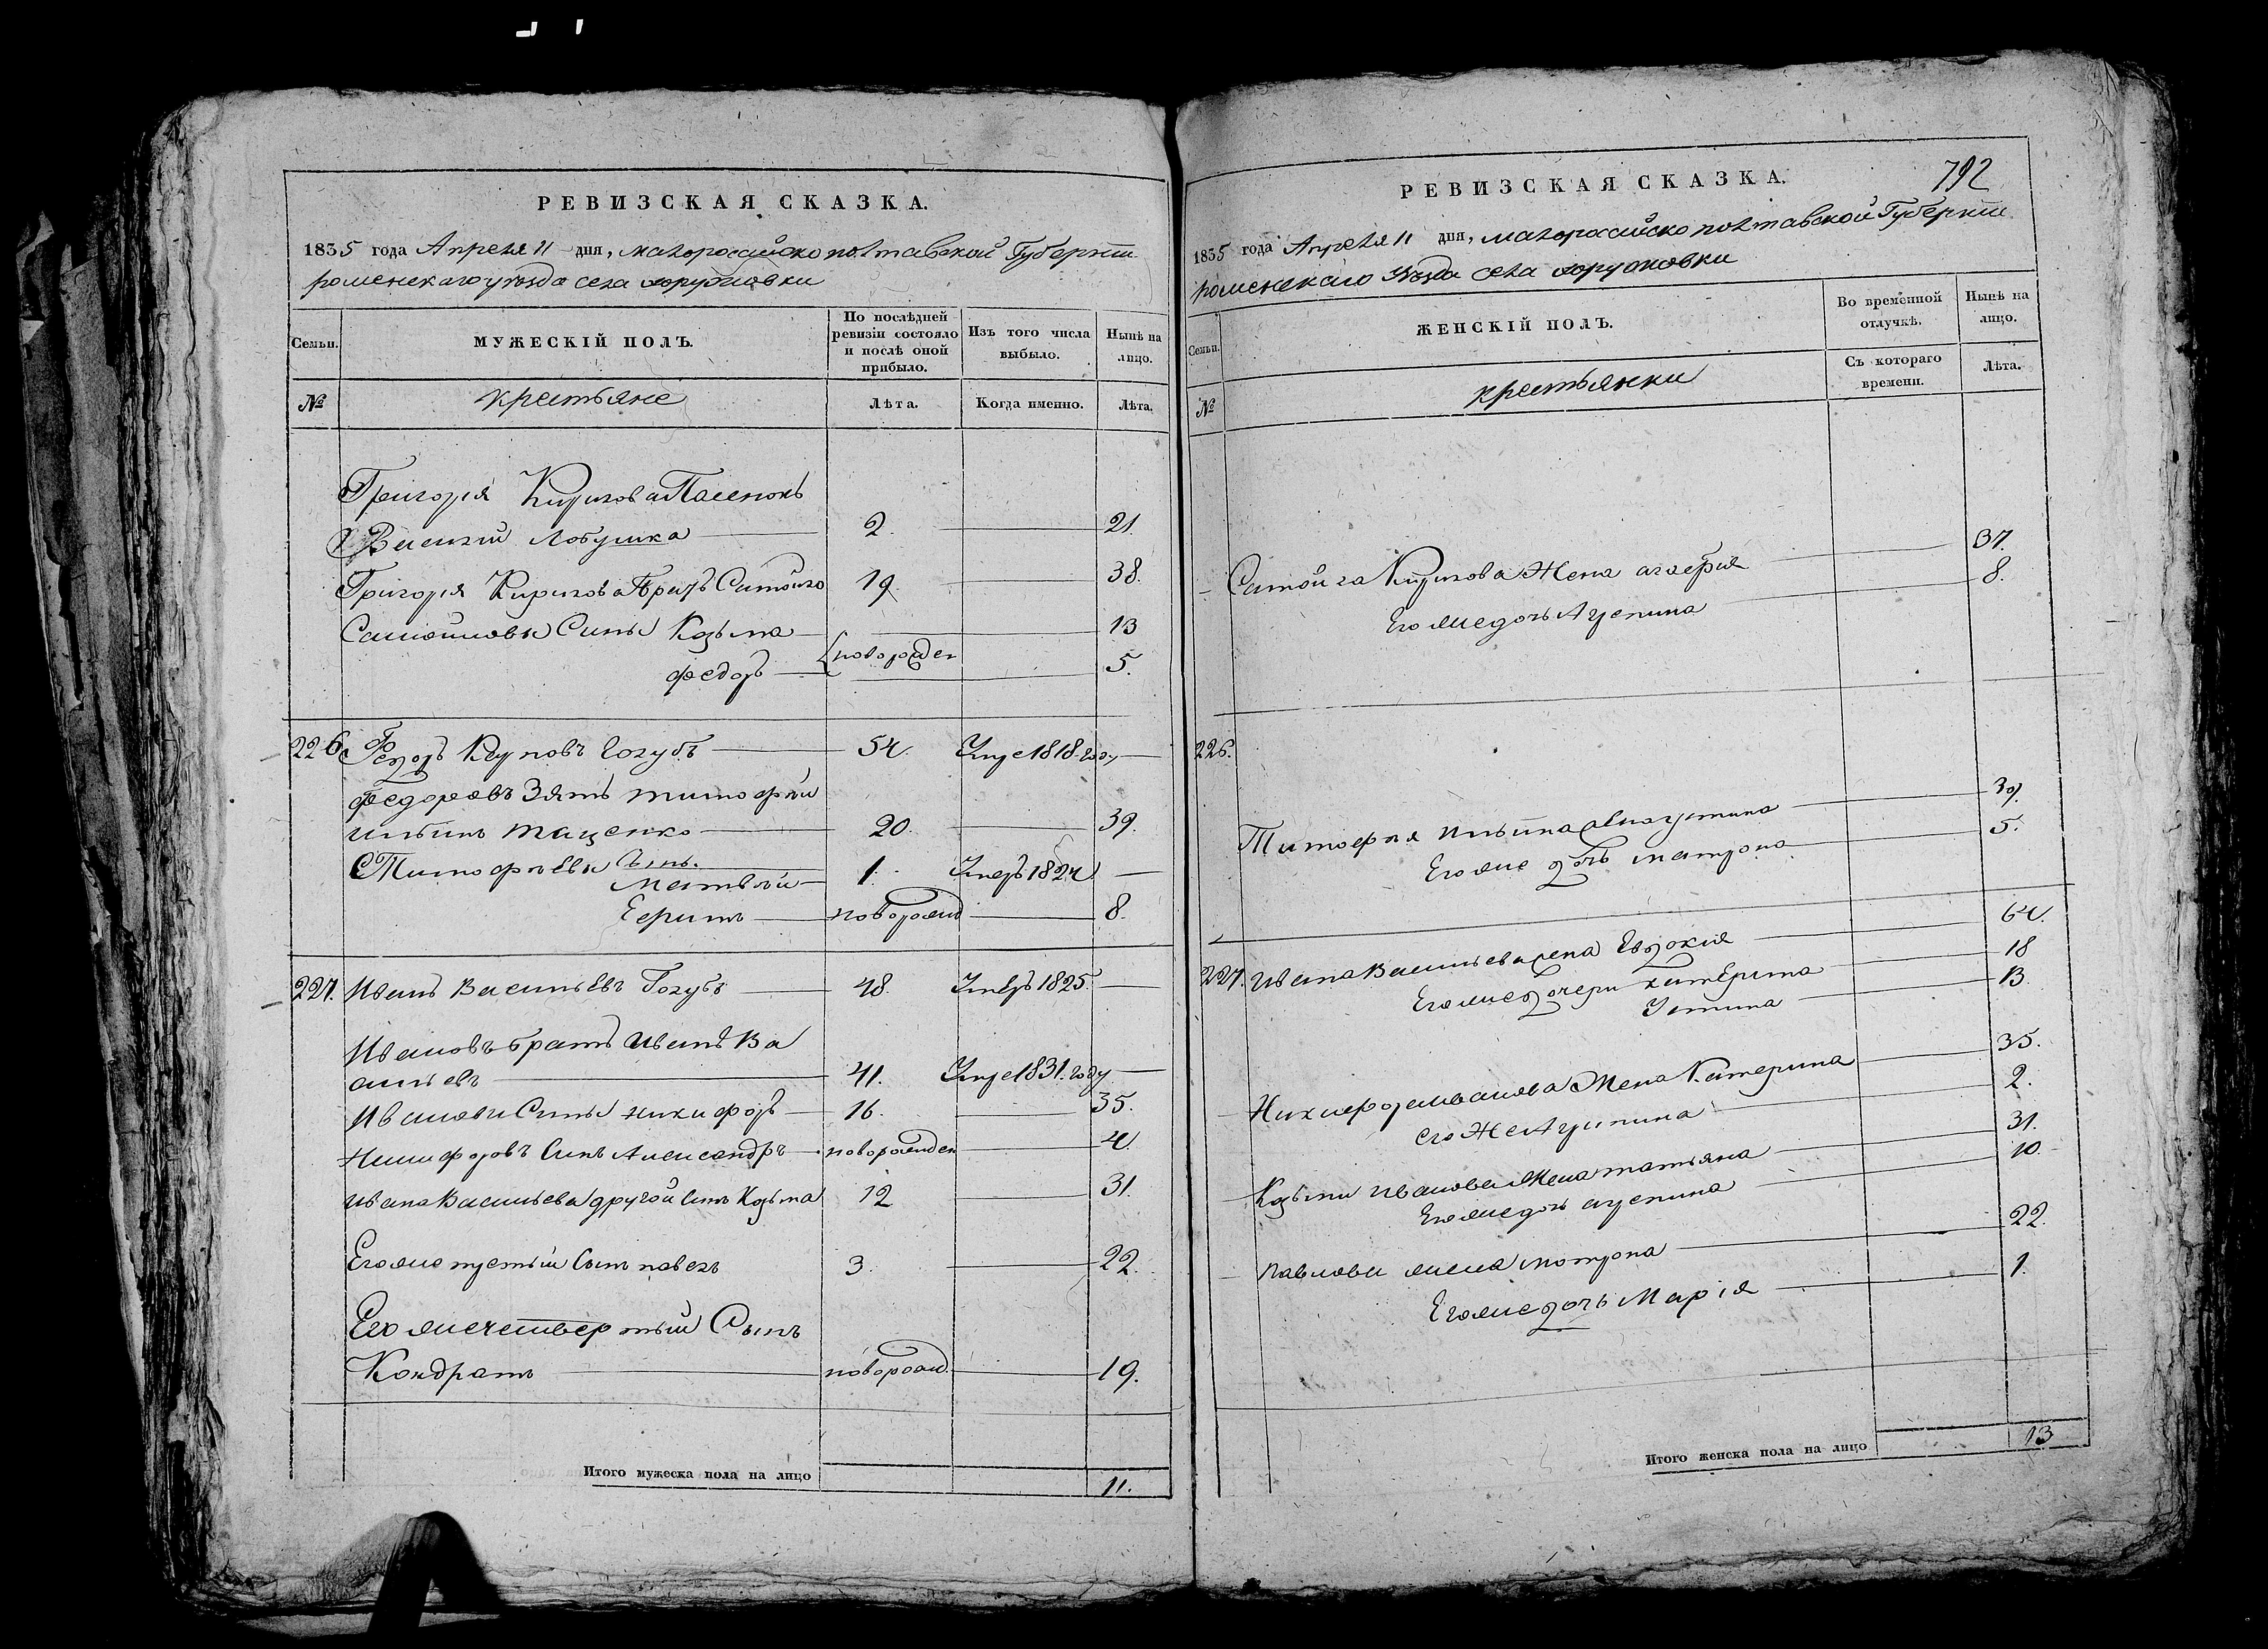 РЕВИЗСКАЯ СКАЗКА.
1835 года Апреля 11 дня, малоросийско полтавской Губернии
роменскаго уезда села хоружовки
Семьи.
МУЖЕСКІЙ ПОЛЪ.
По послѣдней ревизіи состояло и послѣ оной прибыло.
Изъ того числа выбыло.
Нынѣ на лицо.
№
крестьяне
Лѣта.
Когда именно.
Лѣта.
Григорія Кирилова Пасенокъ
Василій Лобушка 2. 21.
Григорія Кирилова Братъ Самойло 19. 38.
Самойловы Сины Козьма 13
новорожден
федоръ 5.
226. Федоръ Карповъ Голубъ 54. Умре 1818 году
федоровъ Зять тимофѣй
ильинъ тащенко 20. 39.
Тимофѣевы Сынъ
Матвѣй 1. Умеръ 1824
новорожд 8.
227. Иванъ Васильевъ Голубъ 48. Умеръ 1825.
Ивановъ братъ Иванъ Ва
сильевъ 41. Умре 1831 году
Ивановы Сины никифоръ 16. 35.
Никифоровъ Синъ Александръ новорожден 4.
Ивана Васильева другой Синъ Козьма 12 31.
Егоже третій Сынъ павелъ 3. 22.
Егоже четвертый Сынъ
Кондратъ новорожд. 19.
Итого мужеска пола на лицо 11.
РЕВИЗСКАЯ СКАЗКА. 792
1835 года Апреля 11 дня, малоросийско полтавской Губернии
роменскаго уезда села хоружовки
Семьи.
ЖЕНСКІЙ ПОЛЪ.
Во временной отлучкѣ.
Нынѣ на лицо.
№
крестьянки
Съ котораго времени.
Лѣта.
Самойла Кирилова Жена 37.
Егоже дочь Агрепина 8.
226.
Тимофея Ильина 39.
Егоже дочь матрона 5.
227. Ивана Васильева жена Евдокия 64.
Егоже дочери катерина 18
Устина 13.
Никифора Иванова Жена Катерина 35.
его Же Агрипина 2.
Козьми Иванова Жена татьяна 31.
Егоже дочь агрепина 10.
Павлова жена мотрона 22.
Егоже дочь Марія 1.
Итого женска пола на лицо 13